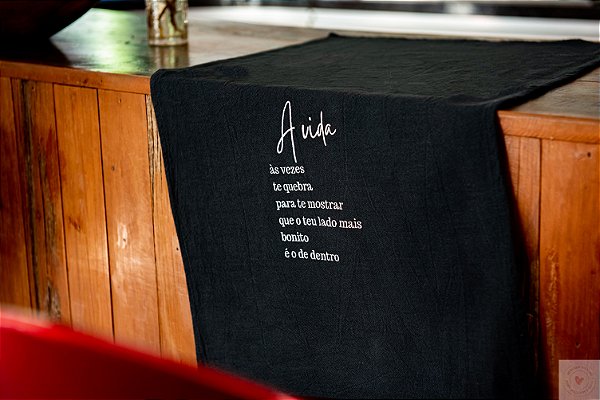 A vida
às vezes
te quebra
para te mostrar
que o teu lado mais
bonito
é o de dentro